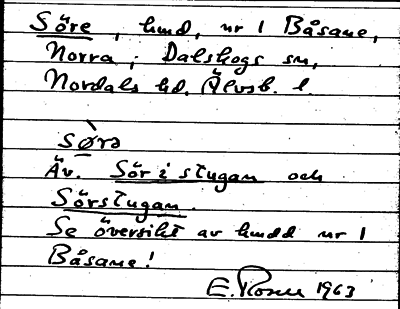 Söre, hmd, nr 1 Båsane,
Norra, Dalskogs sn,
Nordals hd, Älvsb. l.
sø̀rə
Äv. Sör i stugan och
Sörstugan.
Se översikt av hmdd nr 1
Båsane!
E. Rosell 1963